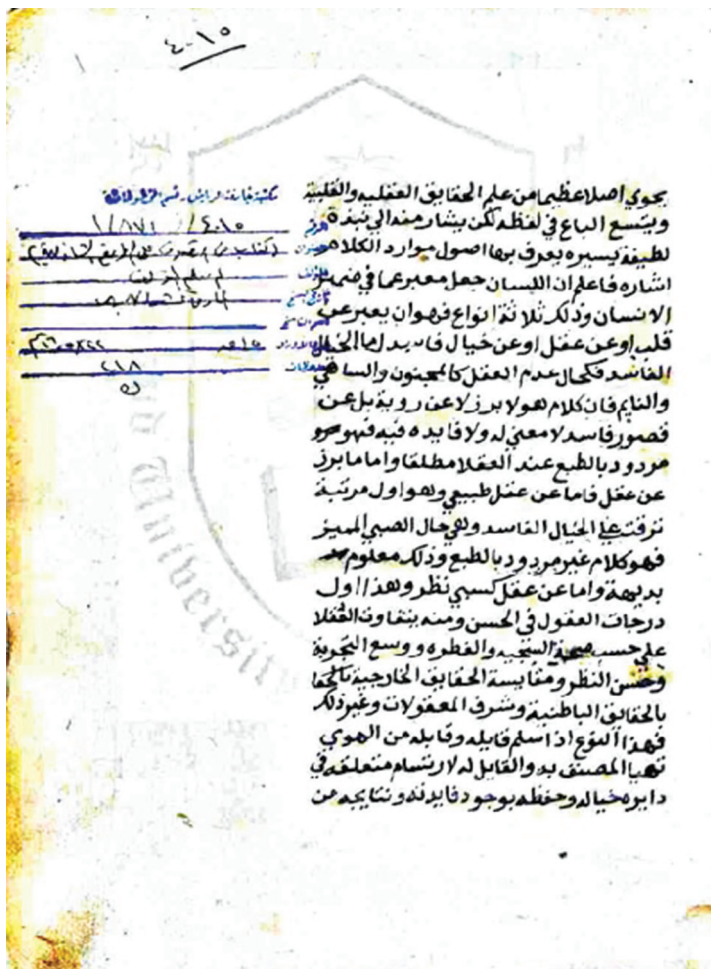 ٤٠١٥
١
يحوي اصلا عظيما من علم الحقايق العقليه والقلبية
ويتسع الباع في لفظه لكن يشار منه الي نبذة
لطيفة يسيره يعرف بها اصول موارد الكلام
اشاره فاعلم ان اللسان جعل معبر عما في ضمير
الانسان وذلك ثلاثة انواع فهو ان يعبر عن
قلب او عن عقل او عن خيال فاسد اما الخيال
الفاسد فكحال عدم العقل كالمجنون والساهي
والنايم فان كلام هولا برز لا عن روية بل عن
قصور فاسد لا معني له ولا فايده فيه فهو
مردود بالطبع عند العقلا مطلقا واما ما برز
عن عقل فاما عن عقل طبيعي وهو اول مرتبة
ترقت علي الخيال الفاسد وهي حال الصبي المميز
فهو كلام غير مردود بالطبع وذلك معلوم
بديهة واما عن عقل كسبي نظر وهذا اول
درجات العقول في الحسن ومنه يتفاوت العقلا
علي حسب صحة السجيه والفطره ووسع التجربة
وحسن النظر ومقايسة الحقايق الخارجية
بالحقائق الباطنية وشرف المعقولات وغير ذلك
فهذا النوع اذ اسلم قايله وقابله من الهوي
تهيا المصنف به والقابل له لارتسام متعلقه في
دايره خياله وحفظه بوجود فايدته ونتايجه من
مكتبة جامعة الرياض - قسم المخطوطات
٤٠١٥ / ١/٨٧١
٢١٨
University